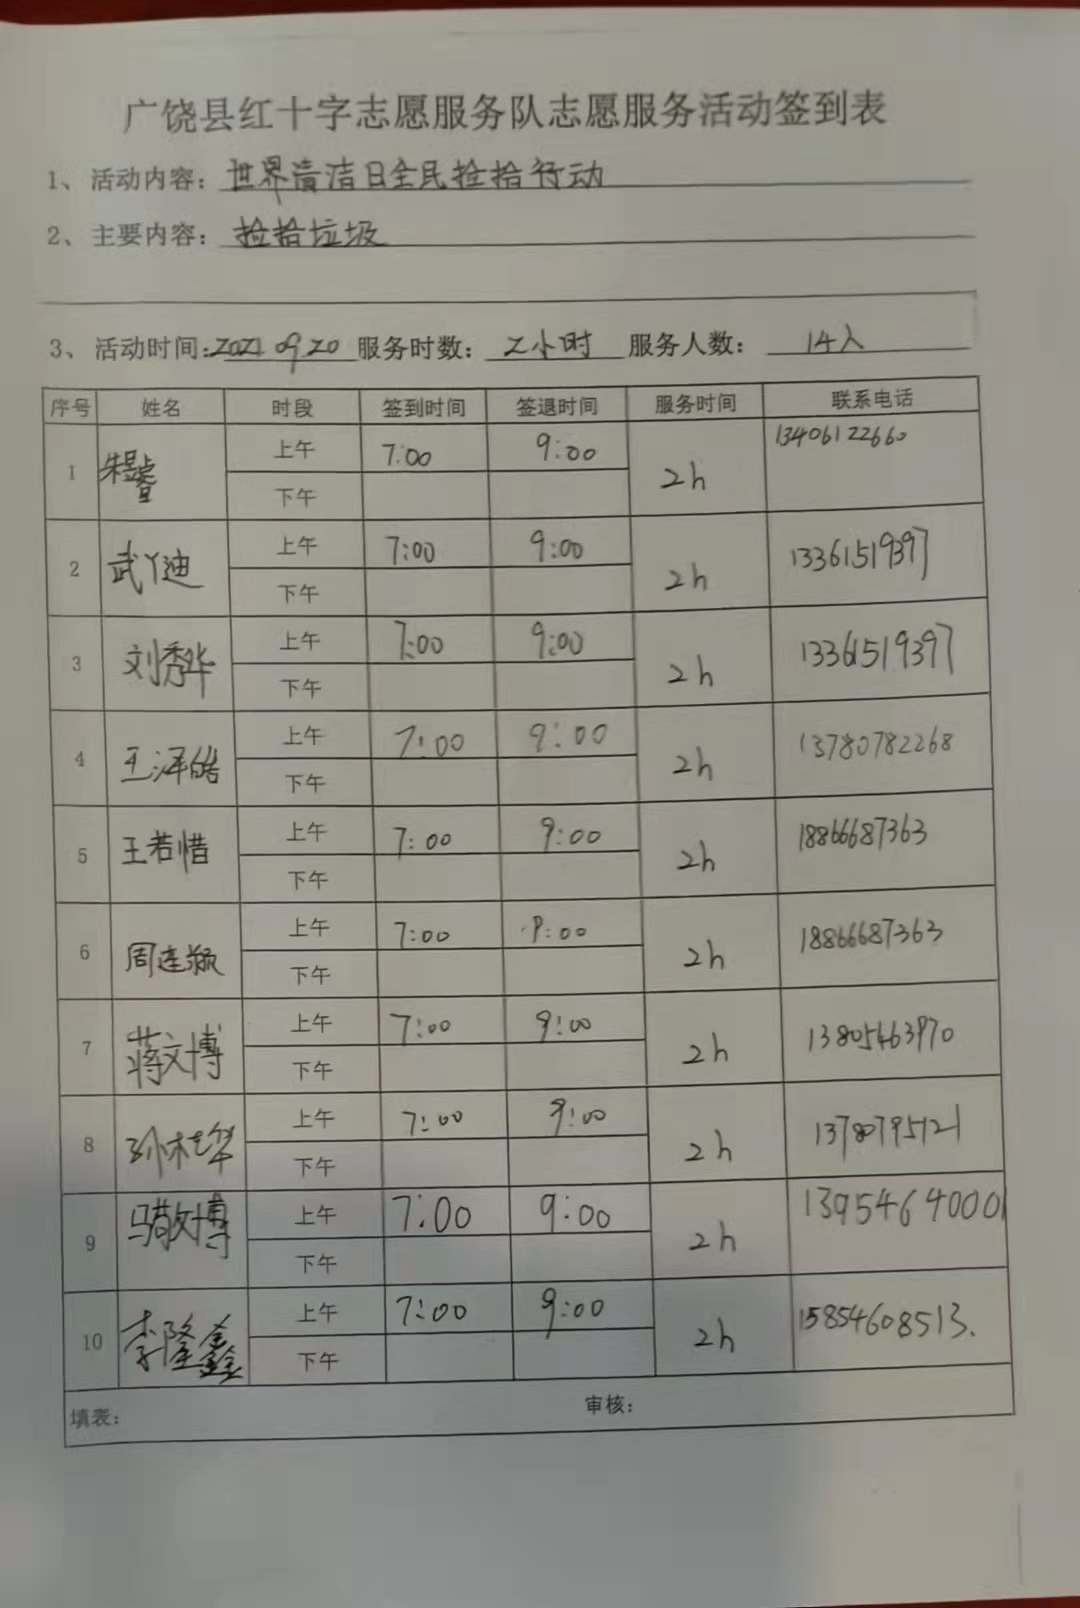 广饶县红十字志愿服务队志愿服务活动签到表
1、活动内容：世界清洁日全民捡拾行动
2、主要内容：捡拾垃圾
3、活动时间：2021.09.20 服务时数：2小时 服务人数：14人
序号 姓名 时段 签到时间 签退时间 服务时间 联系电话
1 上午 7:00 9:00 2h 13406122660
下午
2 武丫迪 上午 7:00 9:00 2h 13361519397
下午
3 刘秀华 上午 7:00 9:00 2h 13361519397
下午
4 王泽皓 上午 7:00 9:00 2h 13780782268
下午
5 王若惜 上午 7:00 9:00 2h 18866687363
下午
6 周连颖 上午 7:00 9:00 2h 18866687363
下午
7 蒋文博 上午 7:00 9:00 2h 13805463970
下午
8 孙桂华 上午 7:00 9:00 2h 13780795121
下午
9 马敬博 上午 7:00 9:00 2h 13954640001
下午
10 李隆鑫 上午 7:00 9:00 2h 15854608513.
下午
填表： 审核：